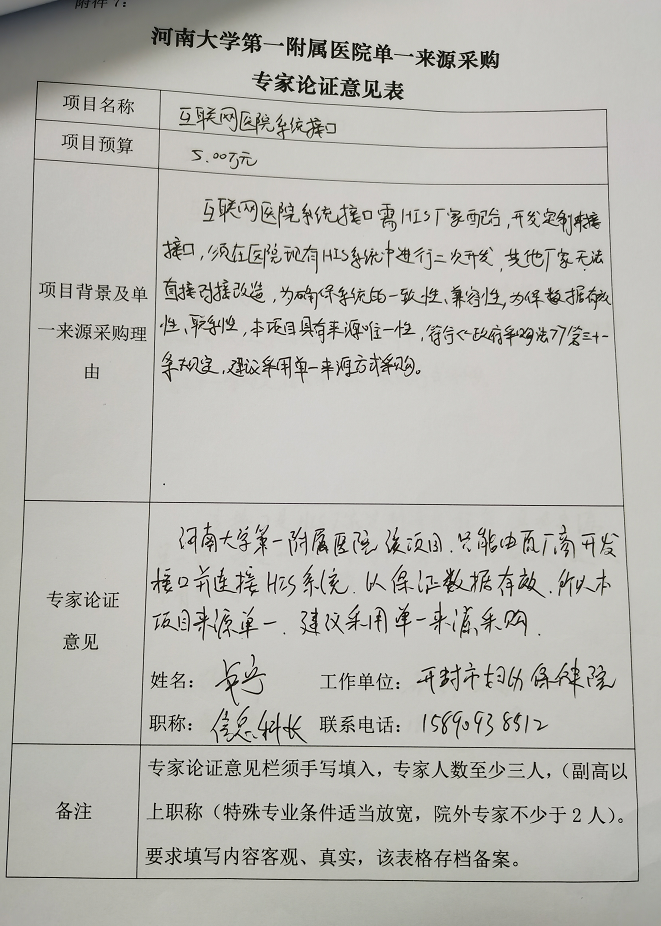 附件7：
河南大学第一附属医院单一来源采购
专家论证意见表
项目名称
互联网医院系统接口
项目预算
5.00万元
项目背景及单
一来源采购理
由
互联网医院系统接口需HIS厂家配合，开发定制对接
接口，须在医院现有HIS系统中进行二次开发，其他厂家无法
直接对接改造，为确保系统的一致性、兼容性，为保数据有效
性、联系性，本项目具有来源唯一性，符合《政府采购法》第三十一
条规定，建议采用单一来源方式采购。
专家论证
意见
河南大学第一附属医院该项目，只能由原厂商开发
接口并连接HIS系统，以保证数据有效，所以本
项目来源单一，建议采用单一来源采购。
姓名： 工作单位：开封市妇幼保健院
职称：信息科长 联系电话：15890938512
备注
专家论证意见栏须手写填入，专家人数至少三人，（副高以
上职称（特殊专业条件适当放宽，院外专家不少于2人）。
要求填写内容客观、真实，该表格存档备案。